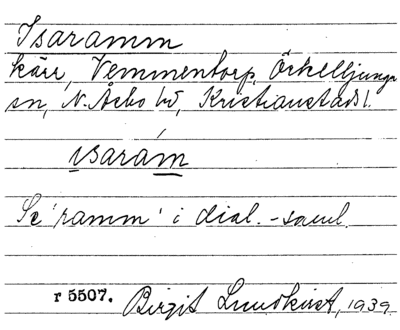 Isaramm
kärr, Vemmentorp, Örkelljunga
sn, N. Åsbo hd, Kristianstads l.
ısarám
Se 'ramm' i dial.-saml.
r 5507. Birgit Lundkvist, 1939